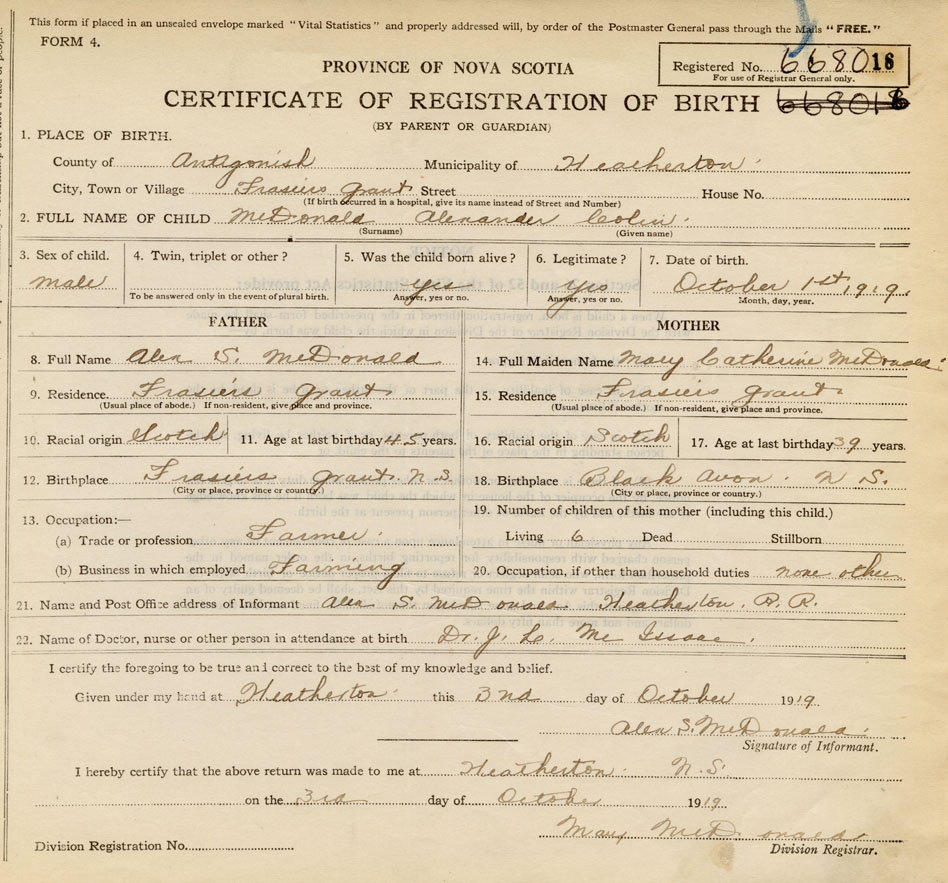 This form if placed in an unsealed envelope marked "Vital Statistics" and properly addressed will, by order of the Postmaster General pass through the Mails "FREE."
FORM 4.
Registered No. 668016
For use of Registrar General only.
PROVINCE OF NOVA SCOTIA
CERTIFICATE OF REGISTRATION OF BIRTH 668016
(BY PARENT OR GUARDIAN)
1. PLACE OF BIRTH.
County of Antigonish Municipality of Heatherton
City, Town or Village Frasiers grant Street House No.
(If birth occurred in a hospital, give its name instead of Street and Number)
2. FULL NAME OF CHILD McDonald Alexander Colin
(Surname) (Given name)
3. Sex of child. male
4. Twin, triplet or other?
To be answered only in the event of plural birth.
5. Was the child born alive? yes
Answer, yes or no.
6. Legitimate? yes
Answer, yes or no.
7. Date of birth.
October 1st, 1919.
Month, day, year.
FATHER
8. Full Name Alex S. McDonald
9. Residence. Frasiers grant
(Usual place of abode.) If non-resident, give place and province.
10. Racial origin Scotch 11. Age at last birthday 45 years.
12. Birthplace Frasiers grant. N.S.
(City or place, province or country.)
13. Occupation:—
(a) Trade or profession. Farmer
(b) Business in which employed. Farming
MOTHER
14. Full Maiden Name Mary Catherine McDonald
15. Residence Frasiers grant
(Usual place of abode.) If non-resident, give place and province.
16. Racial origin Scotch 17. Age at last birthday 39 years.
18. Birthplace Black Avon. N S.
(City or place, province or country.)
19. Number of children of this mother (including this child.)
Living 6 Dead Stillborn
20. Occupation, if other than household duties none other
21. Name and Post Office address of Informant Alex S. McDonald Heatherton. R.R.
22. Name of Doctor, nurse or other person in attendance at birth Dr. J. L. Mc Issac.
I certify the foregoing to be true and correct to the best of my knowledge and belief.
Given under my hand at Heatherton this 3nd day of October 1919.
Alex S. McDonald
Signature of Informant.
I hereby certify that the above return was made to me at Heatherton N.S.
on the 3rd day of October 1919.
Mary McDonald
Division Registration No.
Division Registrar.